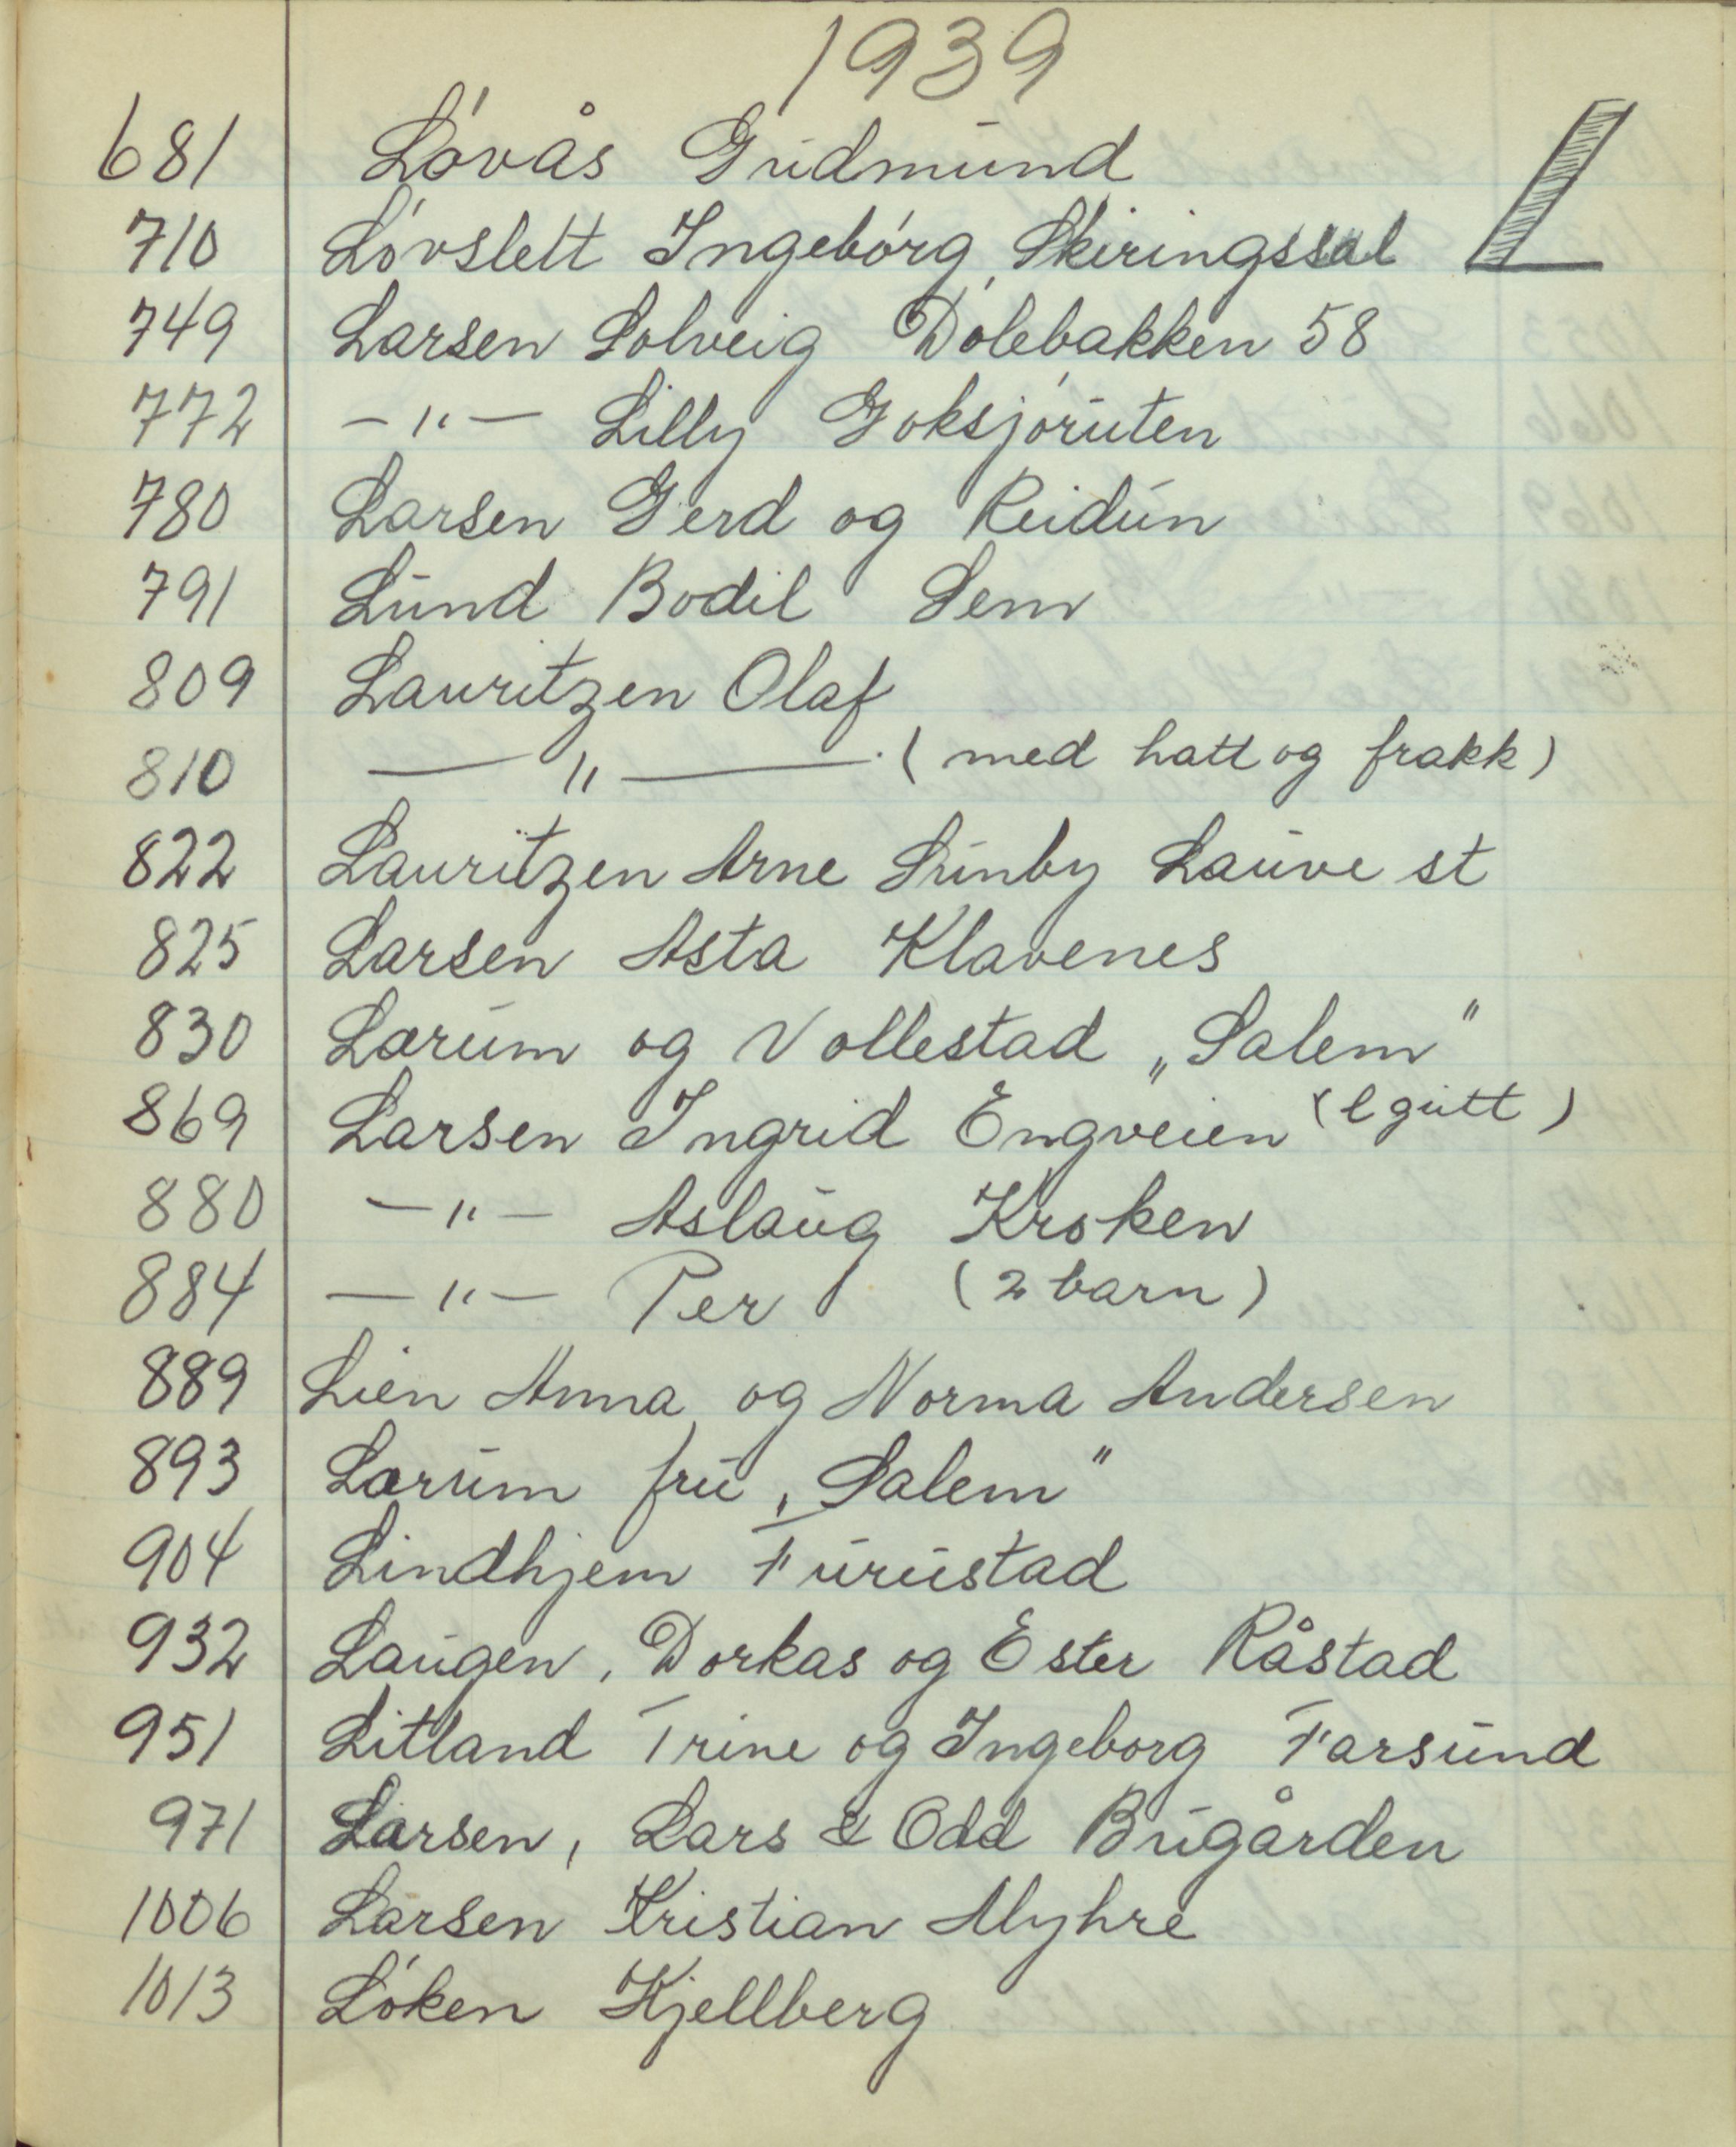 1939
L
681 Lövås Gudmund
710 Lövslett Ingeborg, Skiringssal
749 Larsen Solveig Dölebakken 58
772 -"- Lilly Goksjöruten
780 Larsen Gerd og Reidun
791 Lund Bodil Sem
809 Lauritzen Olaf
810 -"- (med hatt og frakk)
822 Lauritzen Arne Sunby Lauve st
825 Larsen Asta Klavenes
830 Lærum og Vollestad „Salem"
869 Larsen Ingrid Engveien (l gutt)
880 -"- Aslaug Kroken
884 -"- Per (2 barn)
889 Lien Anna og Norma Andersen
893 Lærum fru, Salem"
904 Lindhjem Furustad
932 Laugen, Dorkas og Ester Råstad
951 Litland Trine og Ingeborg Farsund
971 Larsen, Lars & Odd Bugården
1006 Larsen Kristian Myhre
1013 Löken Kjellberg